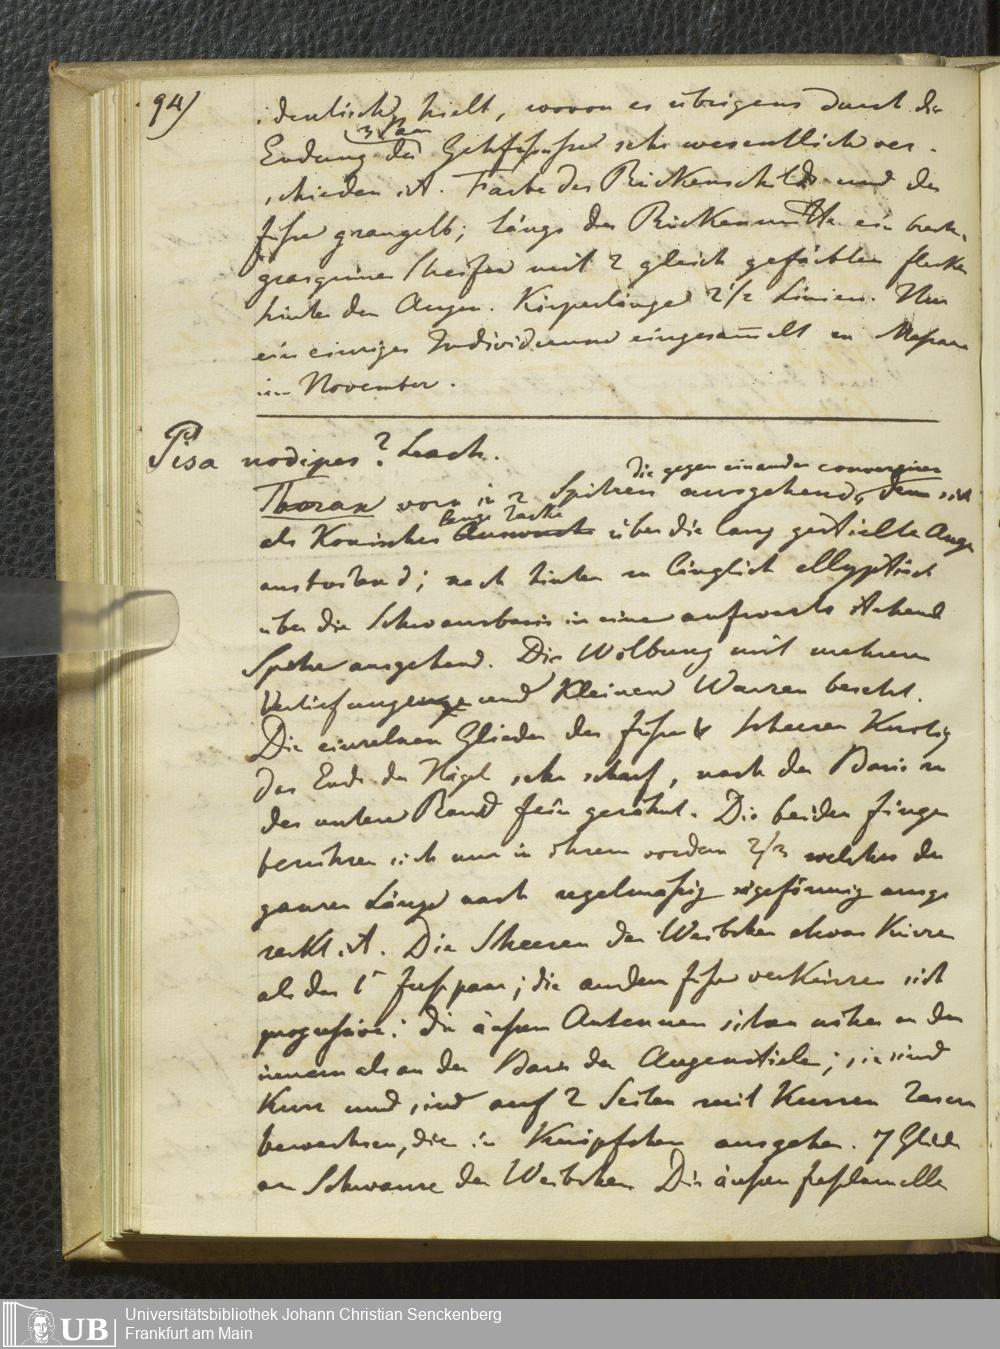 94)
identisch hielt, wovon es übrigens durch die
3 Paar
Endung der Gehfüsse sehr wesentlich ver-
schieden ist. Farbe des Rückenschilds und der
Füsse graugelb; längs der Rückenmitte ein
grasgrüner Streifen mit 2 gleich gefärbten Flecken
hinter den Augen. Körperlänge 2 1/2 Linien. Nur
ein einziges Individuum eingesam̅elt in Massaua
im November.
Pisa nodipes? Leach.
die gegen einander convergiren
Thorax vorn in 2 Spitzen ausgehend, dann sich
lange Zacke
als Konisches über die lang gestielte Auge
; nach hinten zu länglich ellyptisch
über die Schwanzbasis in eine aufwerts stehende
Spitze ausgehend. Die Wölbung mit mehren
Vertiefungen und Kleinen Warzen besetzt.
Die einzelnen Glieder der Füsse & Scheeren Knotig
das Ende der Nägel sehr scharf, nach der Basis zu
der untere Rand fein gezähnt. Die beiden Finger
berühren sich nur in ihrem vordern 2/3 welches der
ganzen Länge nach regelmässig sägeförmig ausge
zackt ist. Die Scheeren der Weibchen etwas Kürzer
als das 1t Fusspaar; die andern Füsse verkürzen sich
progressive: die äussern Antennen sitzen näher an den
innern als an der Basis der Augenstiele; sie sind
Kurz und sind auf 2 Seiten mit Kurzen Zasern
bewachsen, die in Knöpfchen ausgehen. 7 Glieder
am Schwanze der Weibchen Die äussern
UB
Universitätsbibliothek Johann Christian Senckenberg
Frankfurt am Main